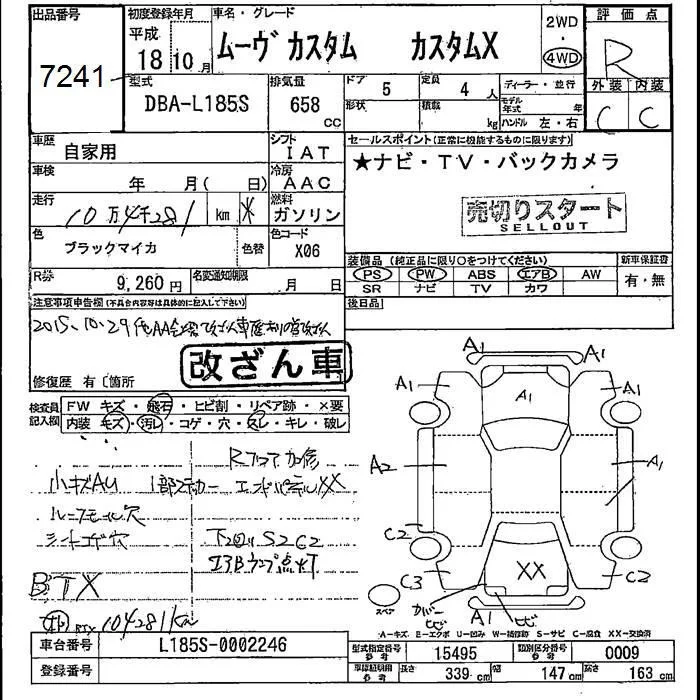 出品番号 7241
初度登録年月 平成 18 10月
車名・グレード
ムーヴ カスタム カスタムX
2WD・4WD
評価点 R
外装 内装
C C
型式 DBA-L185S
排気量 658 cc
ドア 5
定員 4人
形状
積載 kg
ディーラー・並行
モデル年式 年
ハンドル 左・右
車歴 自家用
シフト IAT
車検 年 月( 日)
冷房 AAC
走行 10万4千281 km ＊
燃料 ガソリン
色 ブラックマイカ 色替
色コード X06
R券 9,260円
名変通知期限 月 日
セールスポイント(正常に機能するものに限ります)
★ナビ・TV・バックカメラ
売切りスタート
SELLOUT
装備品 (純正品に限り○をつけてください)
PS PW ABS エアB AW
SR ナビ TV カワ
新車保証書
有・無
後日品
注意事項申告欄(不具合内容等は具体的に記入して下さい)
2015.10.29
改ざん車
修復歴 有〔 箇所
検査員記入欄
FW キズ・飛石・ヒビ割・リペア跡・×要
内装 キズ・汚レ・コゲ・穴・スレ・キレ・破レ
Rフロア加修
小キズAU 1部ステッカー エンドパネルXX
ルーフモール穴
シートコゲ穴 下回りS2C2
エアBランプ点灯
BTX
104281km
A1 A1
A1 A1 A1
A2 A1
C2
C3 XX C2
スペア カバーヒビ A1 ヒビ
A-キズ E-エクボ U-凹み W-補修跡 S-サビ C-腐食 XX-交換済
車台番号 L185S-0002246
登録番号
型式指定番号 参考 15495
類別区分番号 参考 0009
車庫証明用 参考 長さ 339 cm 幅 147 cm 高さ 163 cm